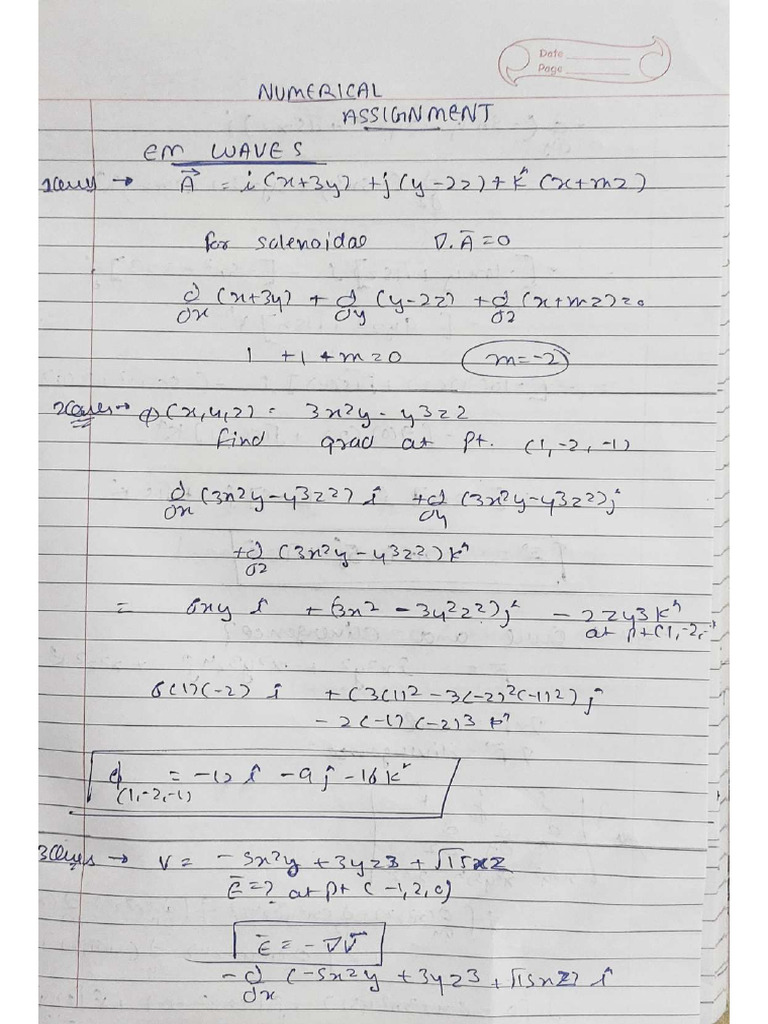 Date
Page
NUMERICAL
ASSIGNMENT
EM WAVES
1Ques → A⃗ = i(x+3y) + j(y-2z) + k^(x+mz)
for solenoidal ∇.A̅ = 0
∂/∂x (x+3y) + ∂/∂y (y-2z) + ∂/∂z (x+mz) = 0
1 + 1 + m = 0 m = -2
2Ques → ϕ(x,y,z) = 3x2y - y3z2
find grad at pt. (1,-2,-1)
∂/∂x (3x2y - y3z2) î + ∂/∂y (3x2y - y3z2) ĵ
+ ∂/∂z (3x2y - y3z2) k^
= 6xy î + (3x2 - 3y2z2) ĵ - 2zy3 k^
at pt (1,-2,-
6(1)(-2) î + (3(1)2 - 3(-2)2(-1)2) ĵ
- 2(-1)(-2)3 k^
ϕ = -12 î - 9 ĵ - 16 k^
(1,-2,-1)
3Ques → V = -5x2y + 3yz3 + √15xz
E̅ = ? at pt (-1,2,0)
E̅ = -∇V̅
- ∂/∂x (-5x2y + 3yz3 + √15xz) î